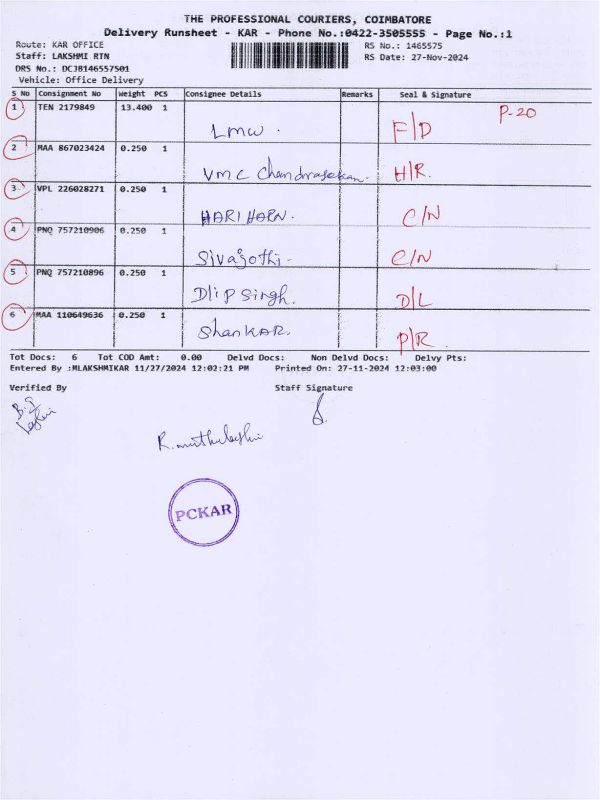 THE PROFESSIONAL COURIERS, COIMBATORE
Delivery Runsheet - KAR - Phone No.:0422-3505555 - Page No.:1
Route: KAR OFFICE
RS No.: 1465575
Staff: LAKSHMI RTN
RS Date: 27-Nov-2024
DRS No.: DCJB146557501
Vehicle: Office Delivery
S No Consignment No Weight PCS Consignee Details Remarks Seal & Signature
P-20
1 TEN 2179849 13.400 1 LMW. F/D
2 MAA 867023424 0.250 1 VMC Chandrasekan. H/R.
3 VPL 226028271 0.250 1 HARI HARN. C/N
4 PNQ 757210906 0.250 1 Sivajothi- C/N
5 PNQ 757210896 0.250 1 Dlip Singh. D/L
6 MAA 110649636 0.250 1 ShanKAR. P/R
Tot Docs: 6 Tot COD Amt: 0.00 Delvd Docs: Non Delvd Docs: Delvy Pts:
Entered By :MLAKSHMIKAR 11/27/2024 12:02:21 PM Printed On: 27-11-2024 12:03:00
Verified By Staff Signature
PCKAR